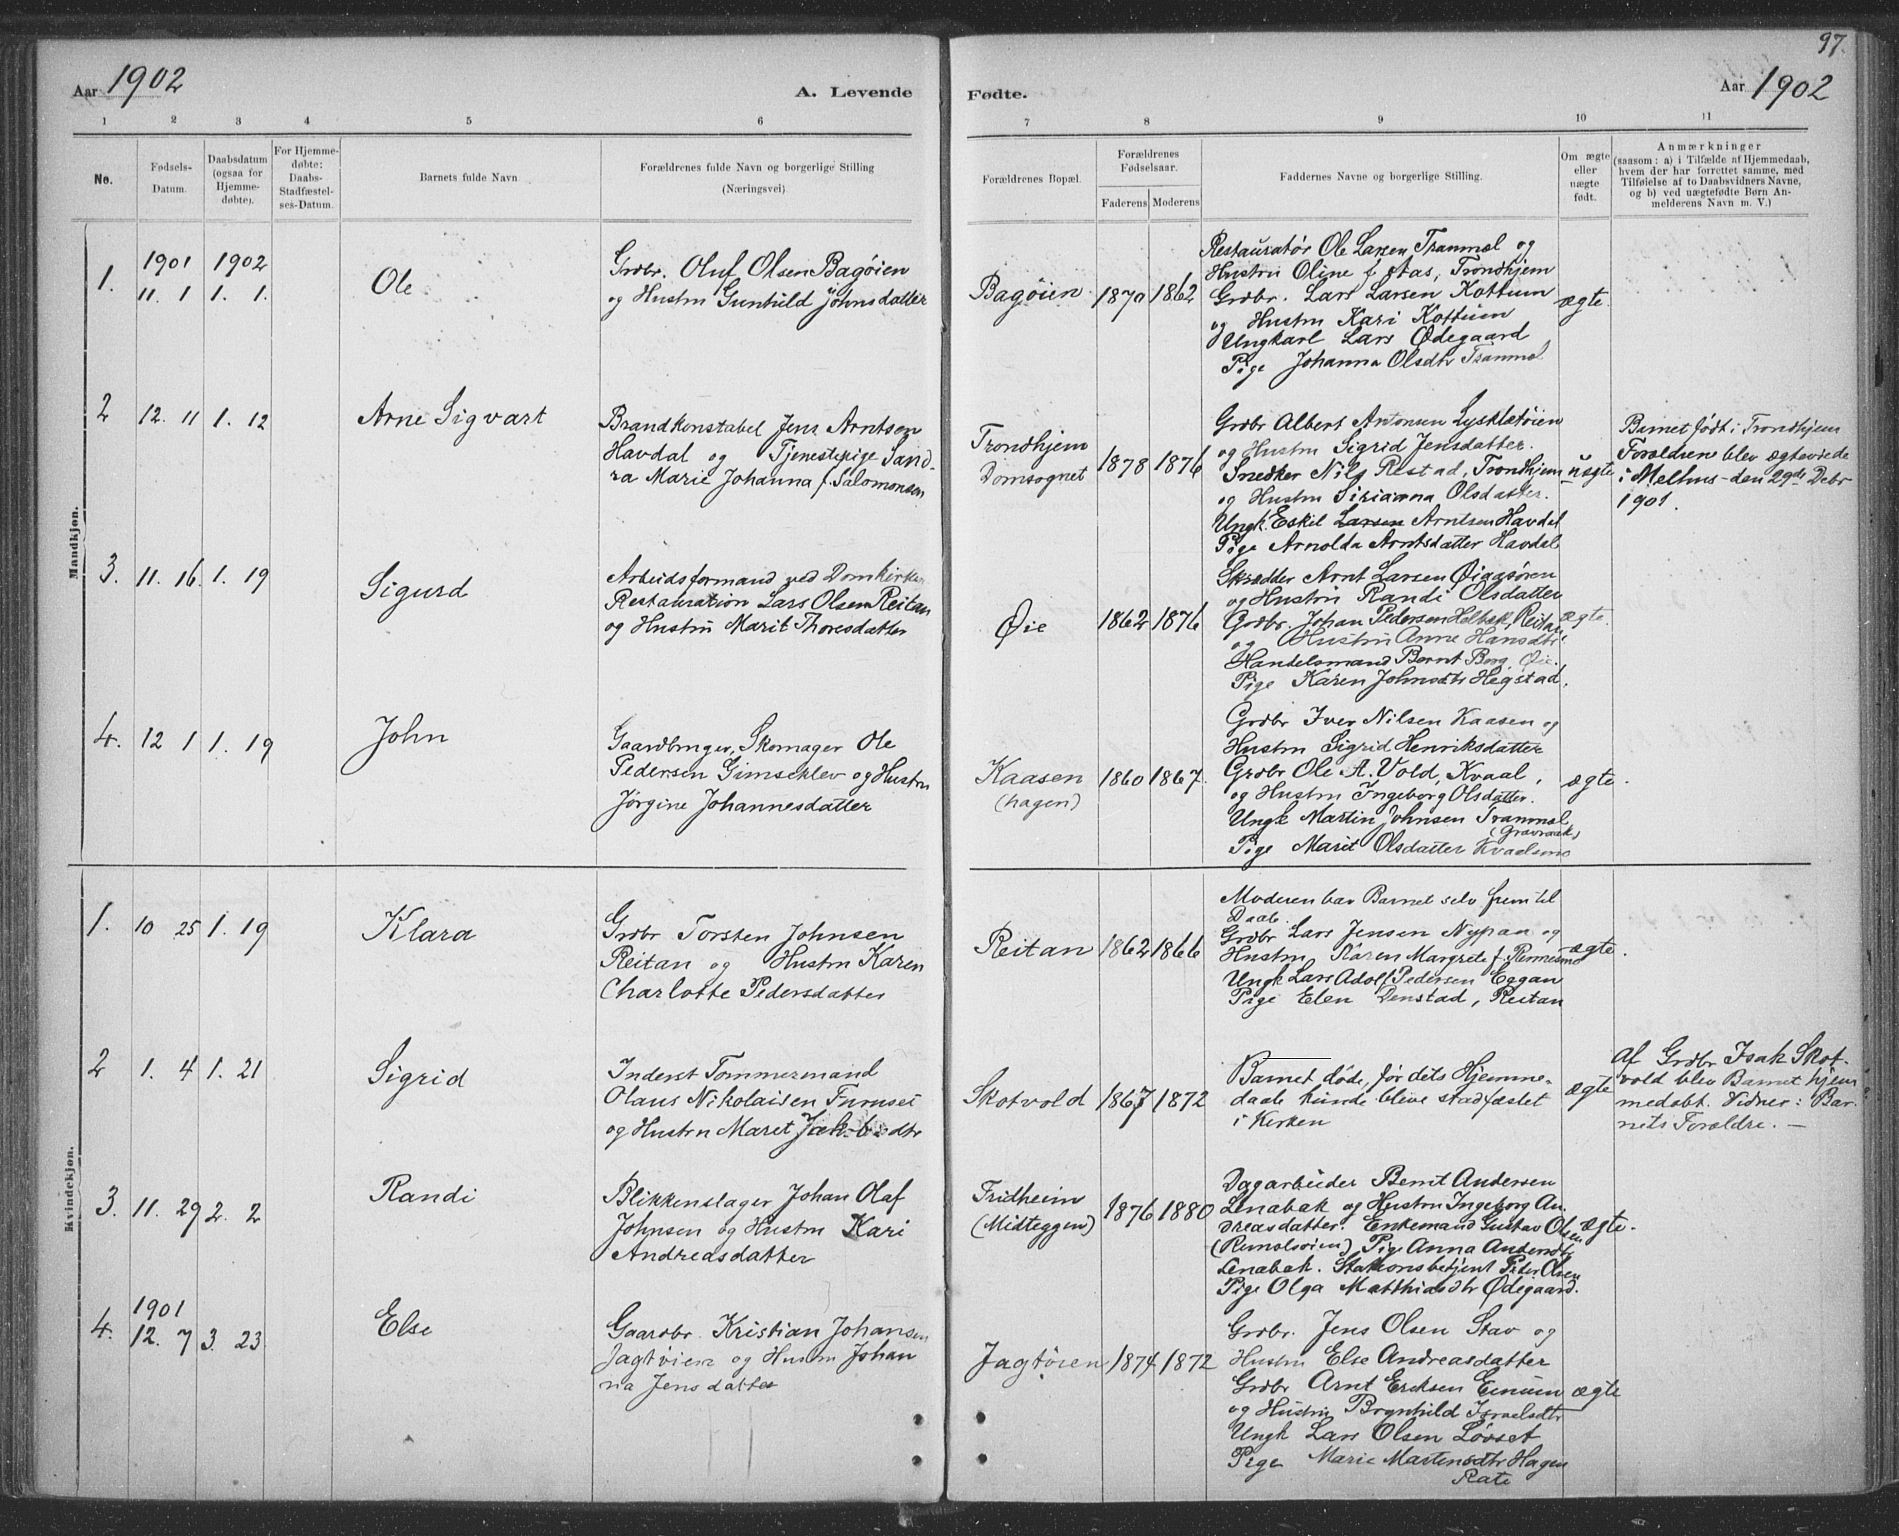 97.
Aar 1902
A. Levende
Fødte.
Aar 1902
1 2 3 4 5 6 7 8 9 10 11
No.
Fødsels-
Datum.
Daabsdatum
(ogsaa for
Hjemme-
døbte).
For Hjemme-
døbte:
Daabs-
Stadfæstel-
ses-Datum.
Barnets fulde Navn
Forældrenes fulde Navn og borgerlige Stilling
(Næringsvei).
Forældrenes Bopæl.
Forældrenes
Fødselsaar.
Faderens Moderens
Faddernes Navne og borgerlige Stilling.
Om ægte
eller
uægte
født.
Anmærkninger
(saasom: a) i Tilfælde af Hjemmedaab,
hvem der har forrettet samme, med
Tilføielse af to Daabsvidners Navne,
og b) ved uægtefødte Børn An-
melderens Navn m. V.)
Mandkjøn.
1.
1901 1902
11. 1 1. 1.
Ole
Grdbr. Oluf Olsen Bagøien
og Hustru Gunhild Johnsdatter
Bagøien 1870 1862
Restauratør Ole Larsen Tranmæl og
Hustru Oline f. Aas, Trondhjem
Grdbr. Lars Larsen Kottum
og Hustru Kari Kottum
Ungkarl Lars Ødegaard
Pige Johanna Olsdtr Tranmæl
ægte.
2
12. 11 1. 12
Arne Sigvart
Brandkonstabel Jens Arntsen
Havdal og Tjenestepige Sand-
ra Marie Johanna f. Salomonsen
Trondhjem
Domsognet
1878 1876
Grdbr Albert Antonsen
og Hustru Sigrid Jensdatter.
Snedker Nils Restad, Trondhjem
og Hustru Sirianna Olsdatter.
Ungk. Eskil Larsen Arntsen Havdal
Pige Arnolda Arntsdatter Havdal
uægte
Barnet født i Trondhjem
Forældren blev ægteviede
i Melhus den 29de Debr
1901.
3.
11. 16. 1. 19
Sigurd
Arbeidsformand ved Domkirkens
Restauration Lars Olsen Reitan
og Hustru Marit Thoresdatter
Øie 1862 1876
Skrædder Arnt Larsen
og Hustru Randi Olsdatter
Grdbr. Johan Pedersen Helbæk, Reitan
og Hustru Anne Hansdtr.
Handelsmand Bernt Borg, Øie.
Pige Karen Johnsdtr Hegstad.
ægte.
4.
12 1 1. 19
John
Gaardbruger, Skomager Ole
Pedersen Gimseklev og Hustru
Jørgine Johannesdatter
Kaasen
(hagen)
1860 1867.
Grdbr Iver Nilsen Kaasen og
Hustru Sigrid Henriksdatter
Grdbr Ole A. Vold, Kvaal,
og Hustru Ingeborg Olsdatter.
Ungk Martin Johnsen Tranmæl
(Gravraak)
Pige Marit Olsdatter Kvaalsmo
ægte.
Kvindekjøn.
1.
10 25 1. 19
Klara
Grdbr Torsten Johnsen
Reitan og Hustru Karen
Charlotte Pedersdatter
Reitan 1862 1866
Moderen bar Barnet selv frem til
Daab.
Grdbr Lars Jensen Nypan og
Hustru Karen Margrete f. Rennesmo
Ungk Lars Adolf Pedersen Eggan
Pige Elen Denstad, Reitan
ægte.
2
1. 4 1. 21
Sigrid
Inderst Tømmermand
Olaus Nikolaisen Furuset
og Hustru Maret Jakobsdtr
Skotvold 1867 1872
Barnet døde, før dets Hjemme-
daab kunde blive stadfæstet
i Kirken
ægte
Af Grdbr Isak Skot-
vold blev Barnet hjem
medøbt. Vidner: Bar-
nets Forældre. —
3.
11. 29 2. 2
Randi
Blikkenslager Johan Olaf
Johnsen og Hustru Kari
Andreasdatter
Fridheim
(Midteggen)
1876 1880
Dagarbeider Bernt Andersen
Lenabak og Hustru Ingeborg An-
dreasdatter. Enkemand Gustav Olsen
Pige Anna Andersdtr
Lenabak. Stationsbetjent Peder Olsen
Pige Olga Matthiasdtr Ødegaard.
ægte.
4.
1901
12. 7 3. 23
Else
Gaardbr. Kristian Johansen
Jagtøien og Hustru Johan
na Jensdatter
Jagtøien 1874 1872
Grdbr. Jens Olsen Stav og
Hustru Else Andreasdatter
Grdbr Arnt Eriksen Eimum
og Hustru Brynhild Israelsdtr
Ungk Lars Olsen Løvset
Pige Marie Martinsdtr Hagen
Rate
ægte